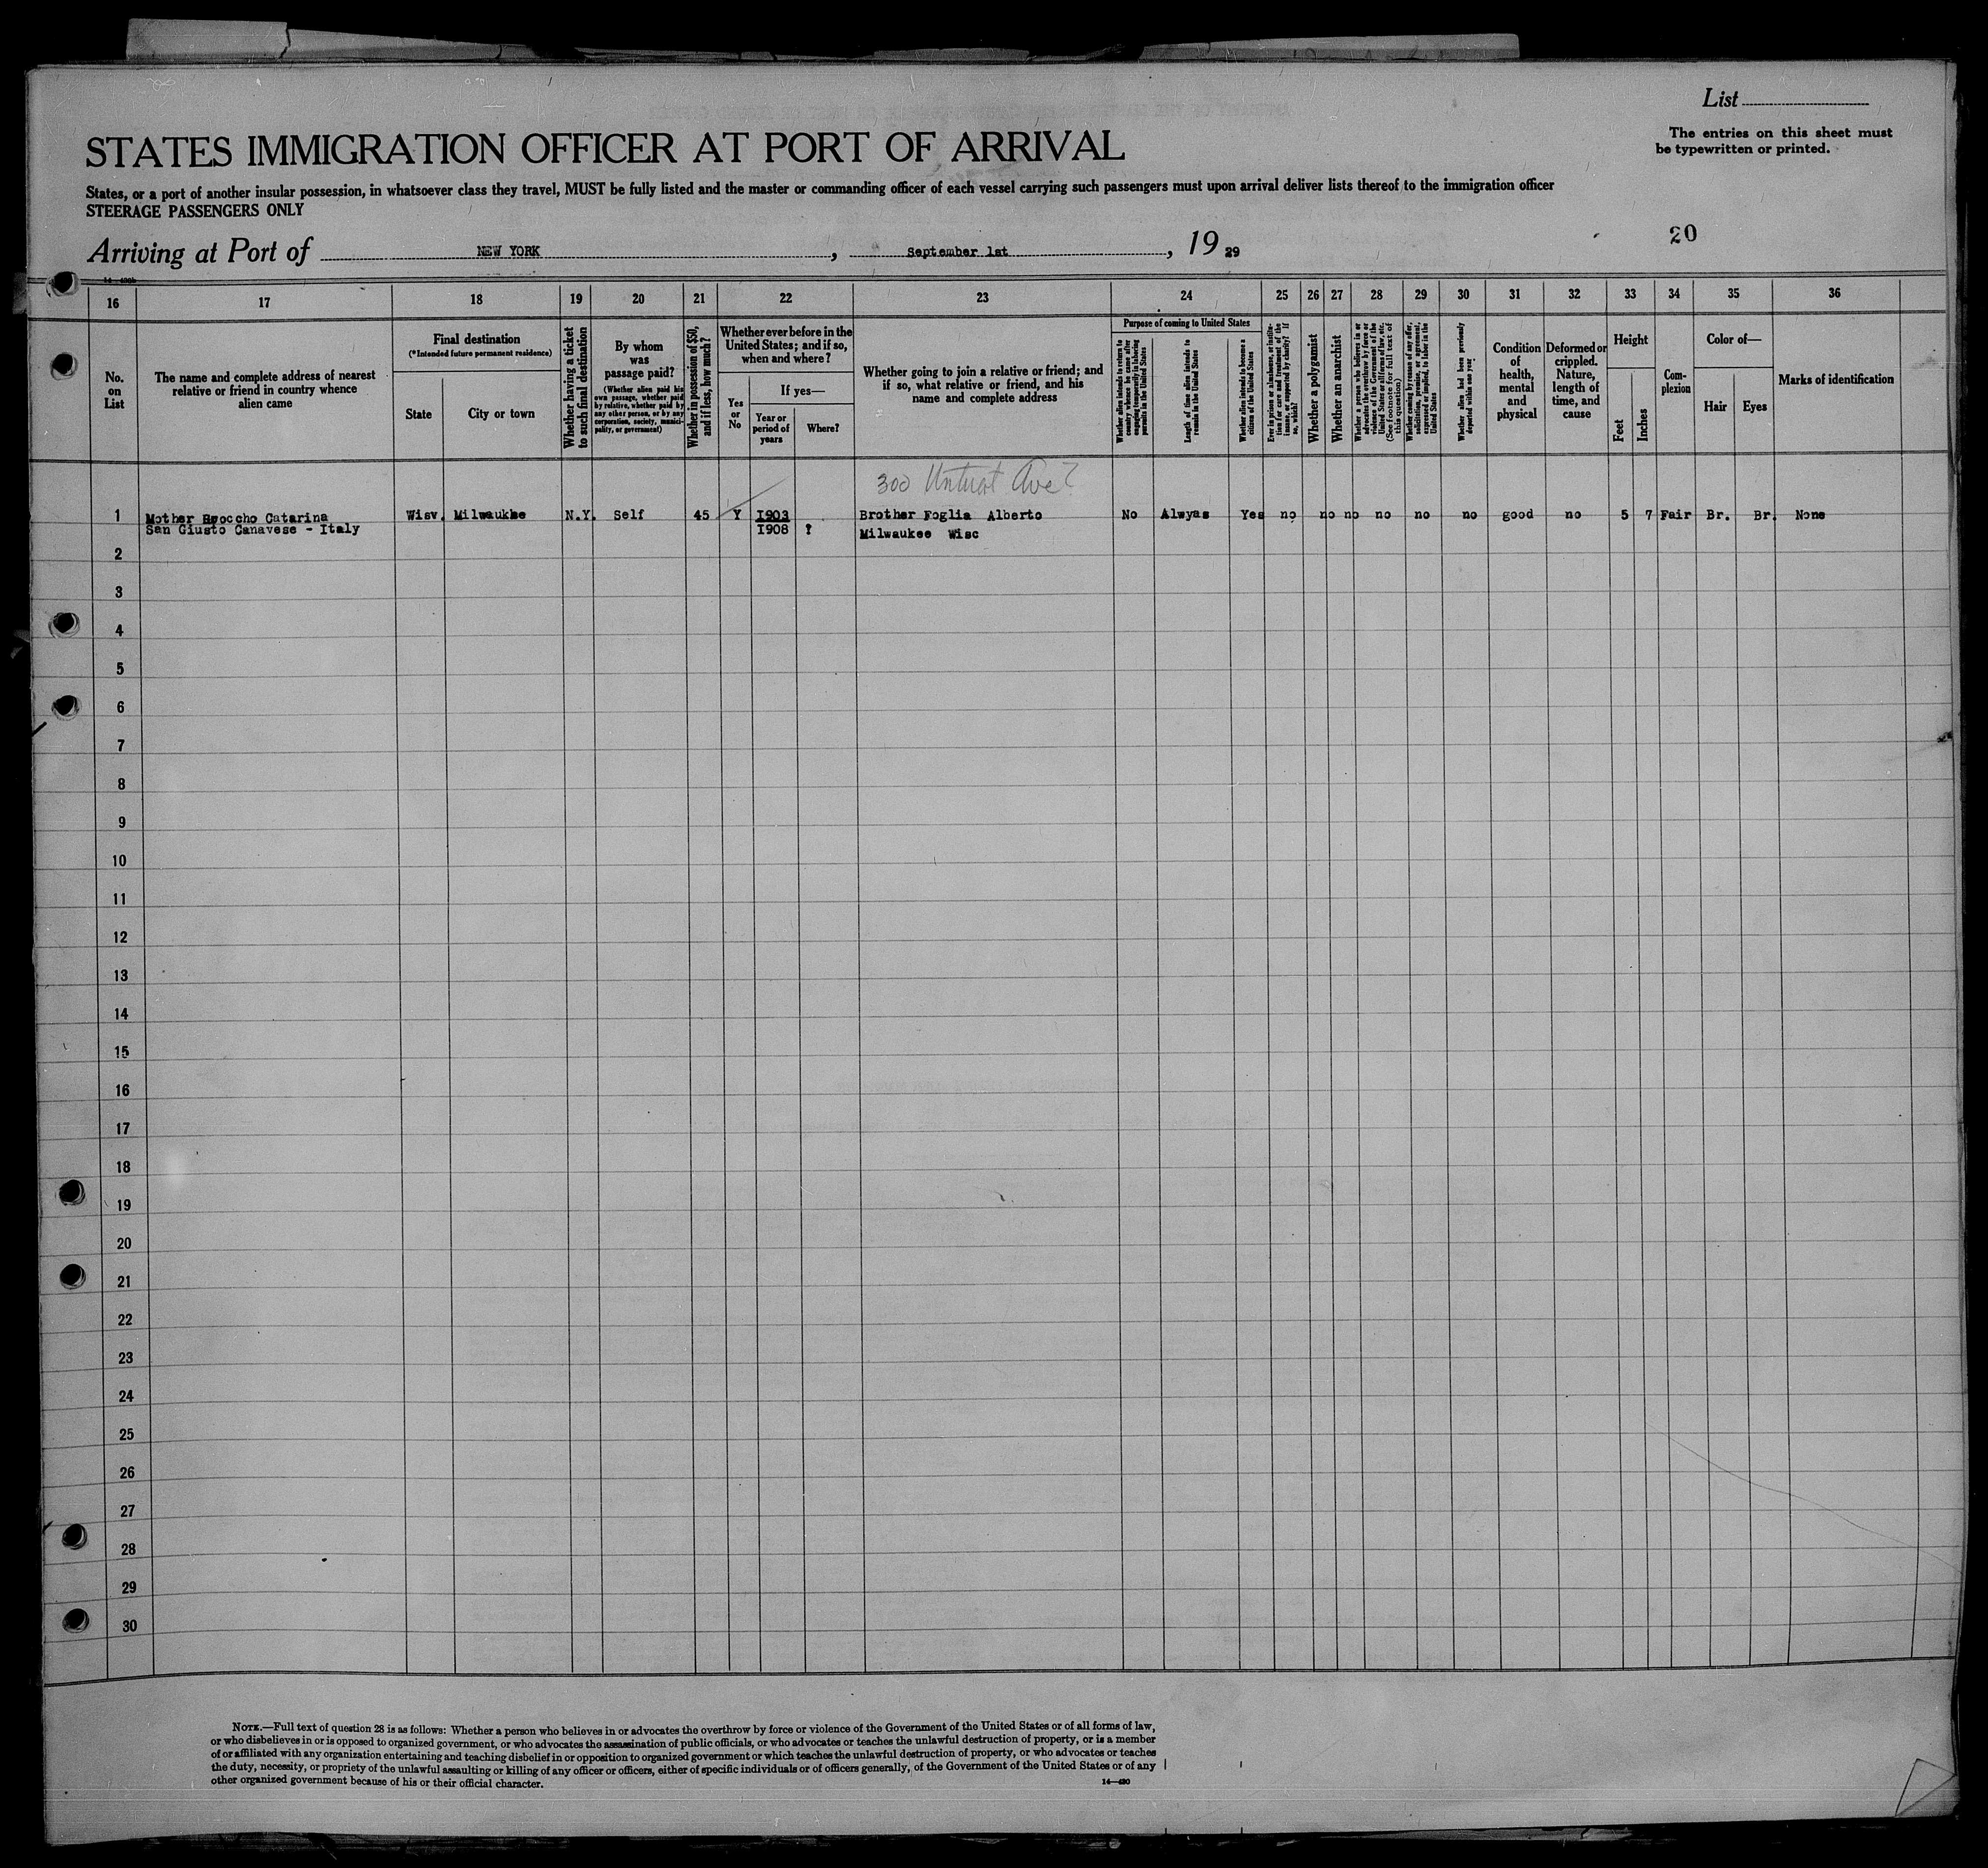 List
The entries on this sheet must
be typewritten or printed.
STATES IMMIGRATION OFFICER AT PORT OF ARRIVAL
States, or a port of another insular possession, in whatsoever class they travel, MUST be fully listed and the master or commanding officer of each vessel carrying such passengers must upon arrival deliver lists thereof to the immigration officer
STEERAGE PASSENGERS ONLY
20
Arriving at Port of NEW YORK, September 1st, 19 29
16 17 18 19 20 21 22 23 24 25 26 27 28 29 30 31 32 33 34 35 36
No. on List
The name and complete address of nearest
relative or friend in country whence
alien came
Final destination
(*Intended future permanent residence)
State
City or town
Whether having a ticket
to such final destination
By whom
was
passage paid?
(Whether alien paid his
own passage, whether paid
by relative, whether paid by
any other person, or by any
corporation, society, munici-
pality, or government)
Whether in possession of $50,
and if less, how much?
Whether ever before in the
United States; and if so,
when and where?
Yes
or
No
If yes—
Year or
period of
years
Where?
Whether going to join a relative or friend; and
if so, what relative or friend, and his
name and complete address
Purpose of coming to United States
Whether alien intends to return to
country whence he came after
engaging temporarily in laboring
pursuits in the United States
Length of time alien intends to
remain in the United States
Whether alien intends to become a
citizen of the United States
Ever in prison or almshouse, or institu-
tion for care and treatment of the
insane, or supported by charity? If
so, which?
Whether a polygamist
Whether an anarchist
Whether a person who believes in or
advocates the overthrow by force or
violence of the Government of the
United States or all forms of law, etc.
(See footnote for full text of
this question)
Whether coming by reason of any offer,
solicitation, promise, or agreement,
expressed or implied, to labor in the
United States
Whether alien had been previously
deported within one year
Condition
of
health,
mental
and
physical
Deformed or
crippled.
Nature,
length of
time, and
cause
Height
Feet
Inches
Com-
plexion
Color of—
Hair
Eyes
Marks of identification
300 Ave?
1 Mother Catarina Wisv. Milwaukee N.Y. Self 45 Y 1903 Brother Foglia Alberto No Alwyas Yes no no no no no no good no 5 7 Fair Br. Br. None
San Giusto Canavese - Italy 1908 ? Milwaukee Wisc
2
3
4
5
6
7
8
9
10
11
12
13
14
15
16
17
18
19
20
21
22
23
24
25
26
27
28
29
30
NOTE.—Full text of question 28 is as follows: Whether a person who believes in or advocates the overthrow by force or violence of the Government of the United States or of all forms of law,
or who disbelieves in or is opposed to organized government, or who advocates the assassination of public officials, or who advocates or teaches the unlawful destruction of property, or is a member
of or affiliated with any organization entertaining and teaching disbelief in or opposition to organized government or which teaches the unlawful destruction of property, or who advocates or teaches
the duty, necessity, or propriety of the unlawful assaulting or killing of any officer or officers, either of specific individuals or of officers generally, of the Government of the United States or of any
other organized government because of his or their official character.
14—430